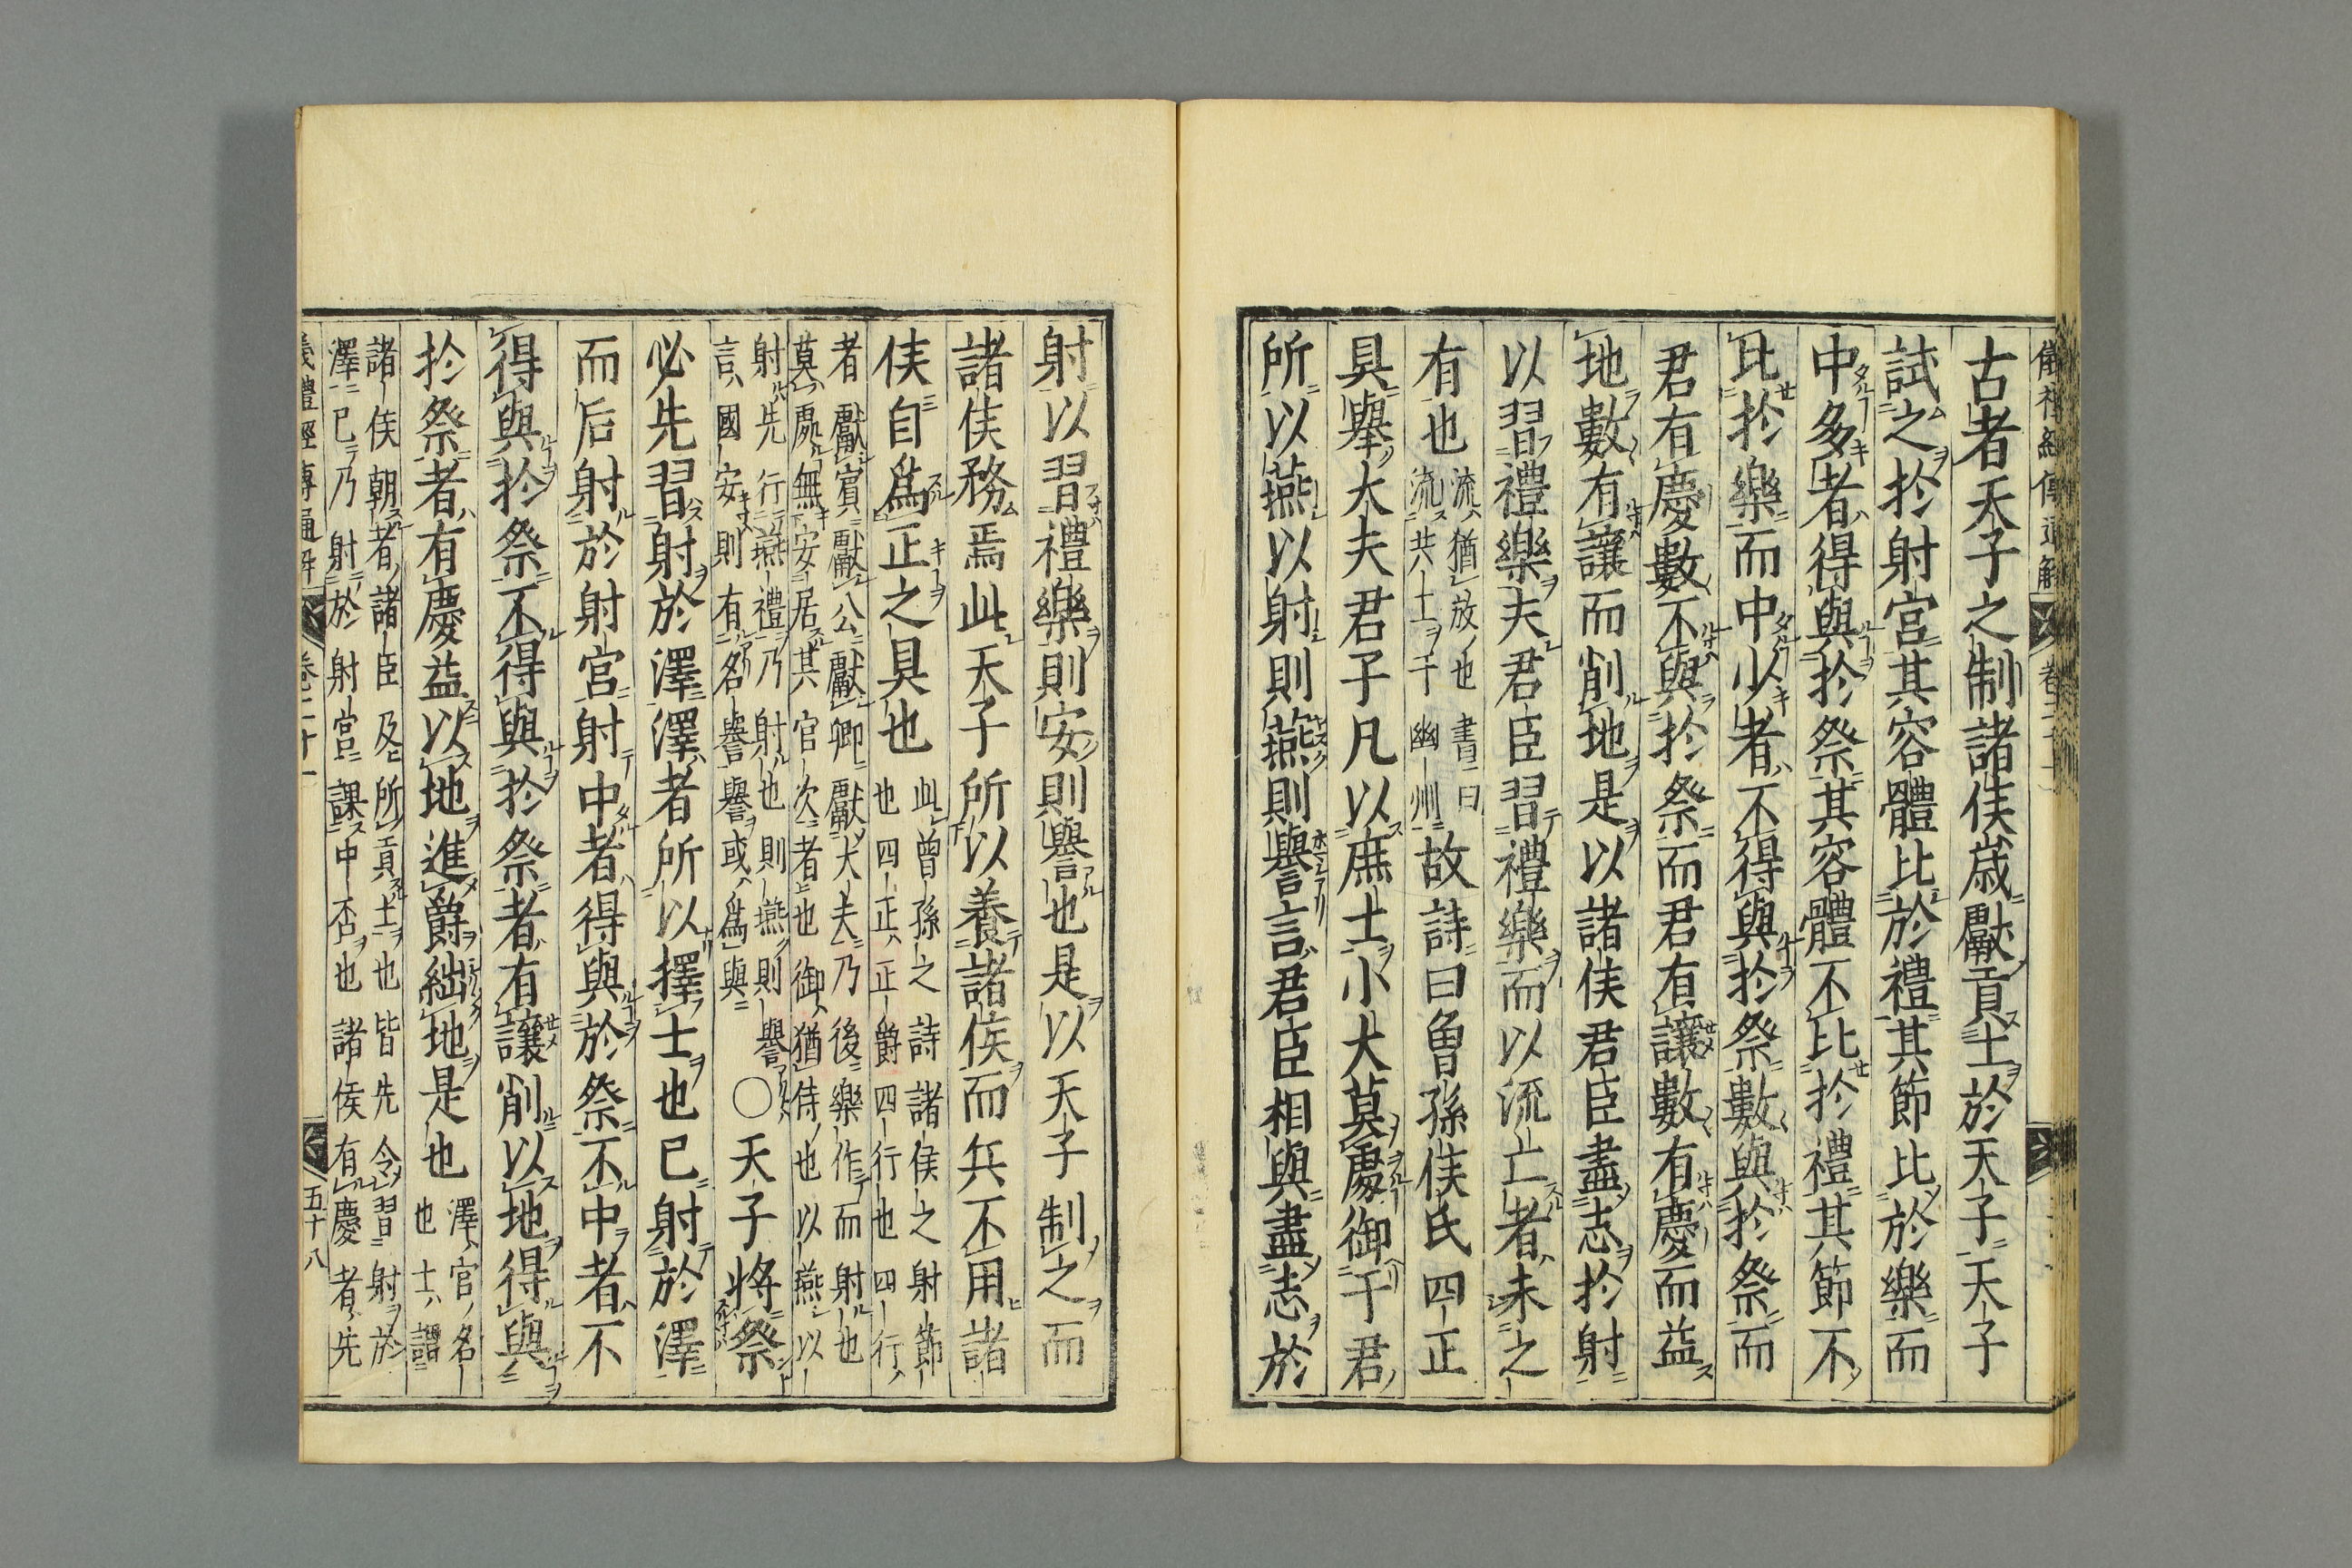 古者天子之制諸侯歲獻貢士於天子天子
試之於射宮其容體比於禮其節比於樂而
中多者得與於祭其容體不比於禮其節不
比於樂而中少者不得與於祭數與於祭而
君有慶數不與於祭而君有讓數有慶而益
地數有讓而削地是以諸侯君臣盡志於射
以習禮樂夫君臣習禮樂而以流亡者未之
有也流猶放也書曰
流共工于幽州故詩曰曾孫侯氏四正
具舉大夫君子凡以庶士小大莫處御于君
所以燕以射則燕則譽言君臣相與盡志於
射以習禮樂則安則譽也是以天子制之而
諸侯務焉此天子所以養諸侯而兵不用諸
侯自為正之具也此曾孫之詩諸侯之射節
也四正正爵四行也四行
者獻賓獻公獻卿獻大夫乃後樂作而射也
莫處無安居其官次者也御猶侍也以燕以
射先行燕禮乃射也則燕則譽
言國安則有名譽譽或為與○天子將祭
必先習射於澤澤者所以擇士也已射於澤
而后射於射宮射中者得與於祭不中者不
得與於祭不得與於祭者有讓削以地得與
於祭者有慶益以地進爵絀地是也澤宮名
也士謂
諸侯朝者諸臣及所貢士也皆先令習射於
澤已乃射於射宮課中否也諸侯有慶者先
五十八